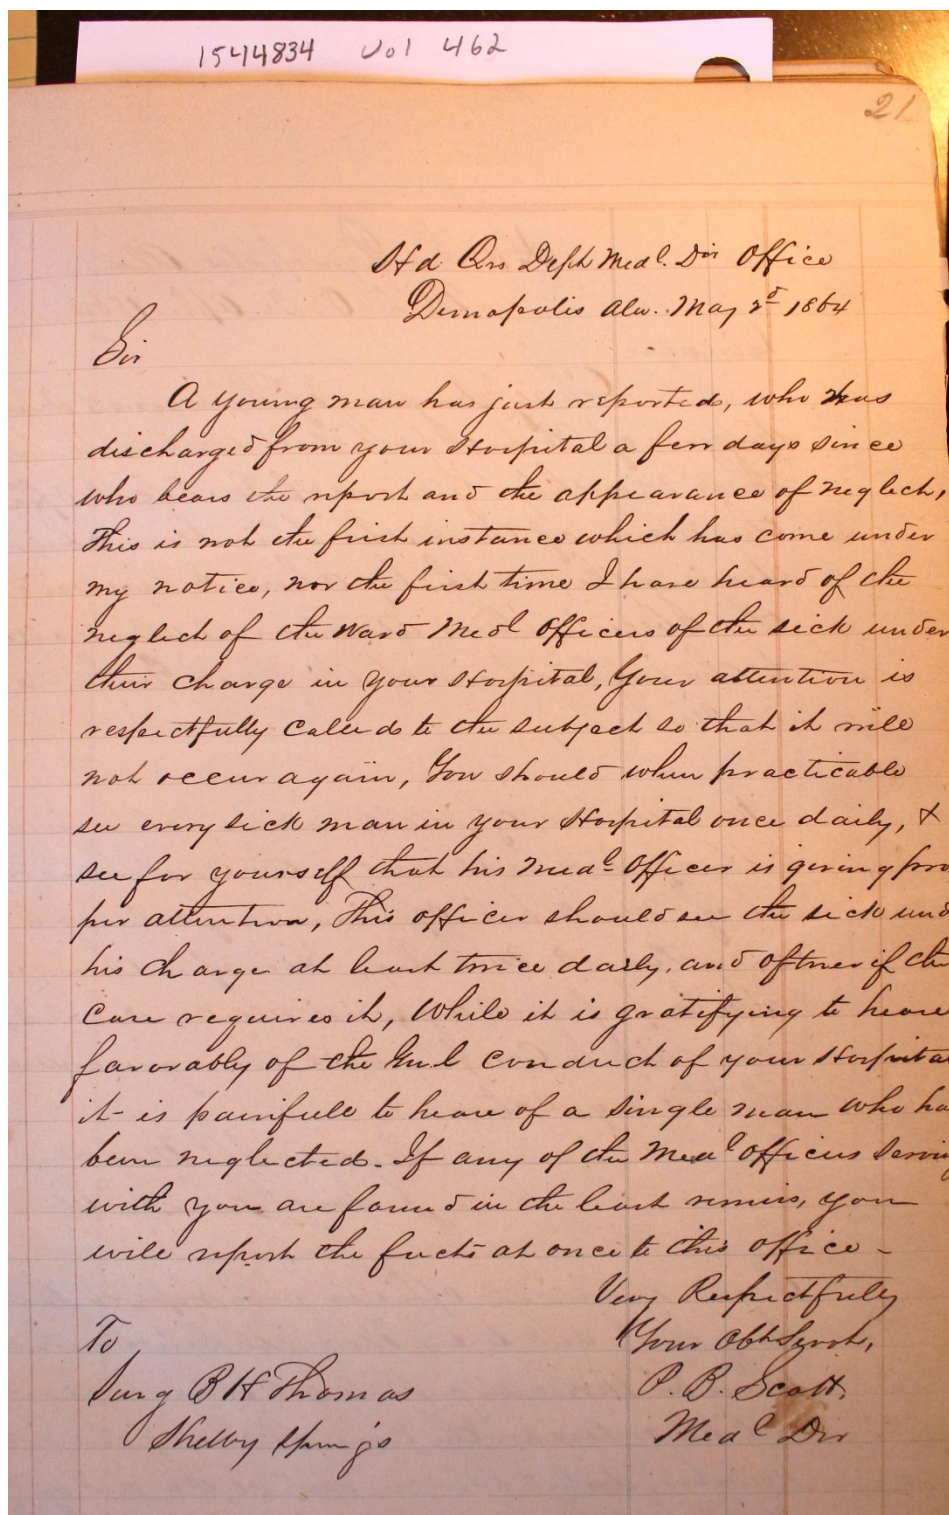 1544834 Vol 462
21
Hd Qrs Dept Medl. Dirs Office
Demopolis Ala. May 2d 1864
Sir
A young man has just reported, who was
discharged from your Hospital a few days since
who bears the report and the appearance of neglect,
This is not the first instance which has come under
my notice, nor the first time I have heard of the
neglect of the Ward Medl Officers of the sick under
their charge in your Hospital, Your attention is
respectfully called to the subject so that it will
not occur again, You should when practicable
see every sick man in your Hospital once daily, &
see for yourself that his Medl Officer is giving pro
per attention, This officer should see the sick und
his charge at least twice daily, and oftner if the
case requires it, While it is gratifying to heare
favorably of the Genl conduct of your Hospital
it is painfull to heare of a single man who ha
been neglected. If any of the Medl Officers servin
with you are found in the least remiss, you
will report the facts at once to this office -
Very Respectfully
Your Obt Servt,
To
P. B. Scott,
Surg B H Thomas
Medl Dir
Shelby Springs